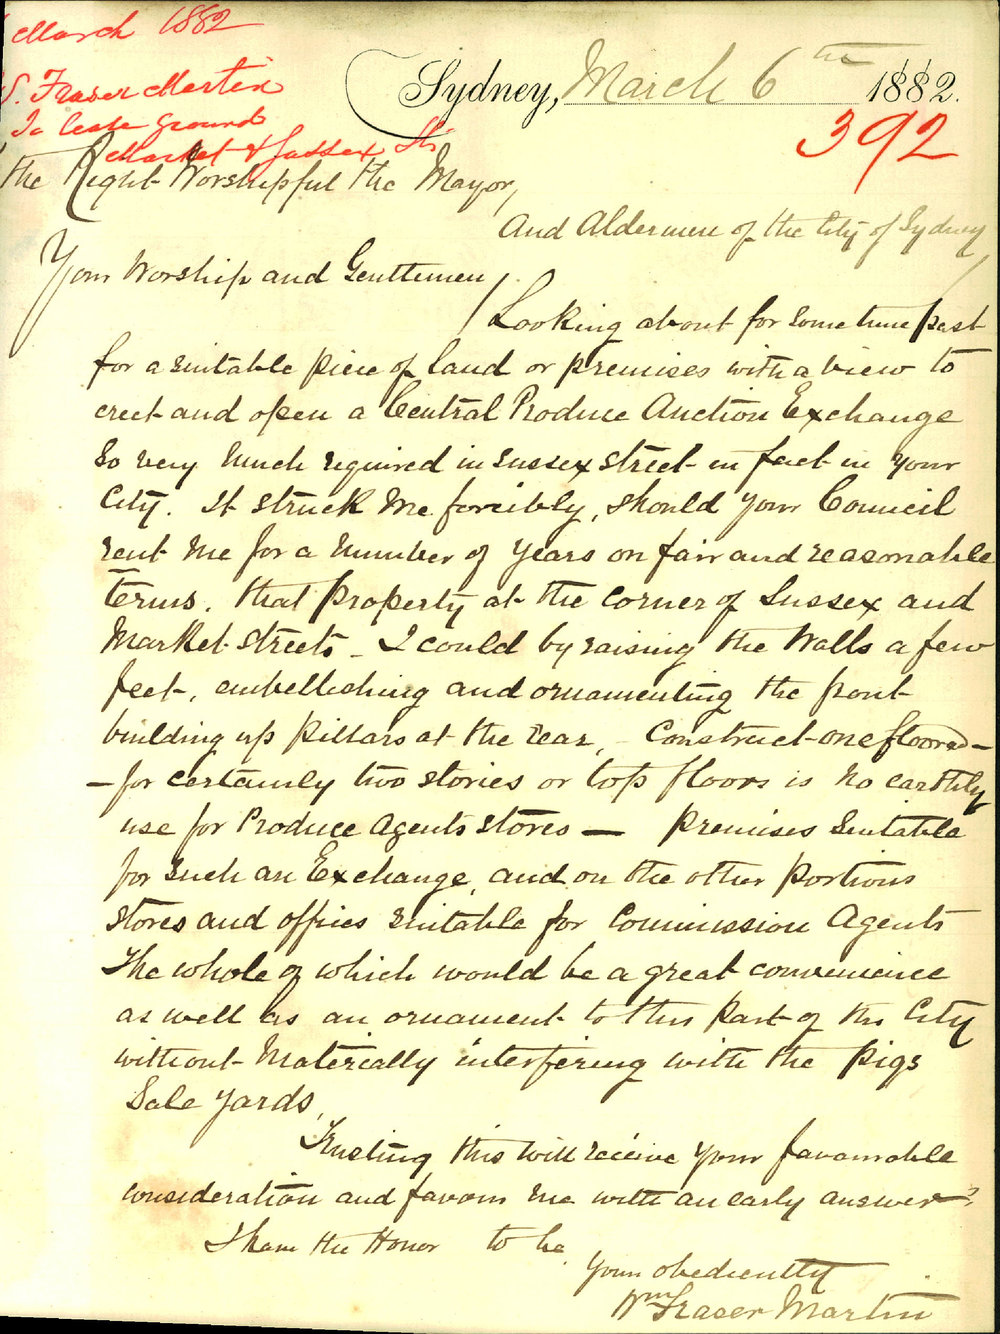 March 1882
S. Fraser Martin
To lease ground
Market & Sussex Sts
Sydney, March 6th 1882.
392
The Right Worshipful the Mayor,
And Aldermen of the City of Sydney
Your Worship and Gentlemen,
Looking about for some time past
for a suitable piece of land or premises with a view to
erect and open a Central Produce Auction Exchange
so very much required in Sussex street in fact in your
City. It struck me forcibly, should your Council
rent me for a number of years on fair and reasonable
terms, that property at the corner of Sussex and
Market streets - I could by raising the walls a few
feet, embellishing and ornamenting the front
building up pillars at the rear, - Construct one floored -
- for certainly two stories or top floors is no earthly
use for Produce Agents stores — premises suitable
for such an Exchange, and on the other portions
stores and offices suitable for Commission Agents
The whole of which would be a great convenience
as well as an ornament to this part of the City
without materially interfering with the pigs
Sale yards,
Trusting this will receive your favourable
consideration and favour me with an early answer
I have the Honor to be
Your obediently
Wm Fraser Martin